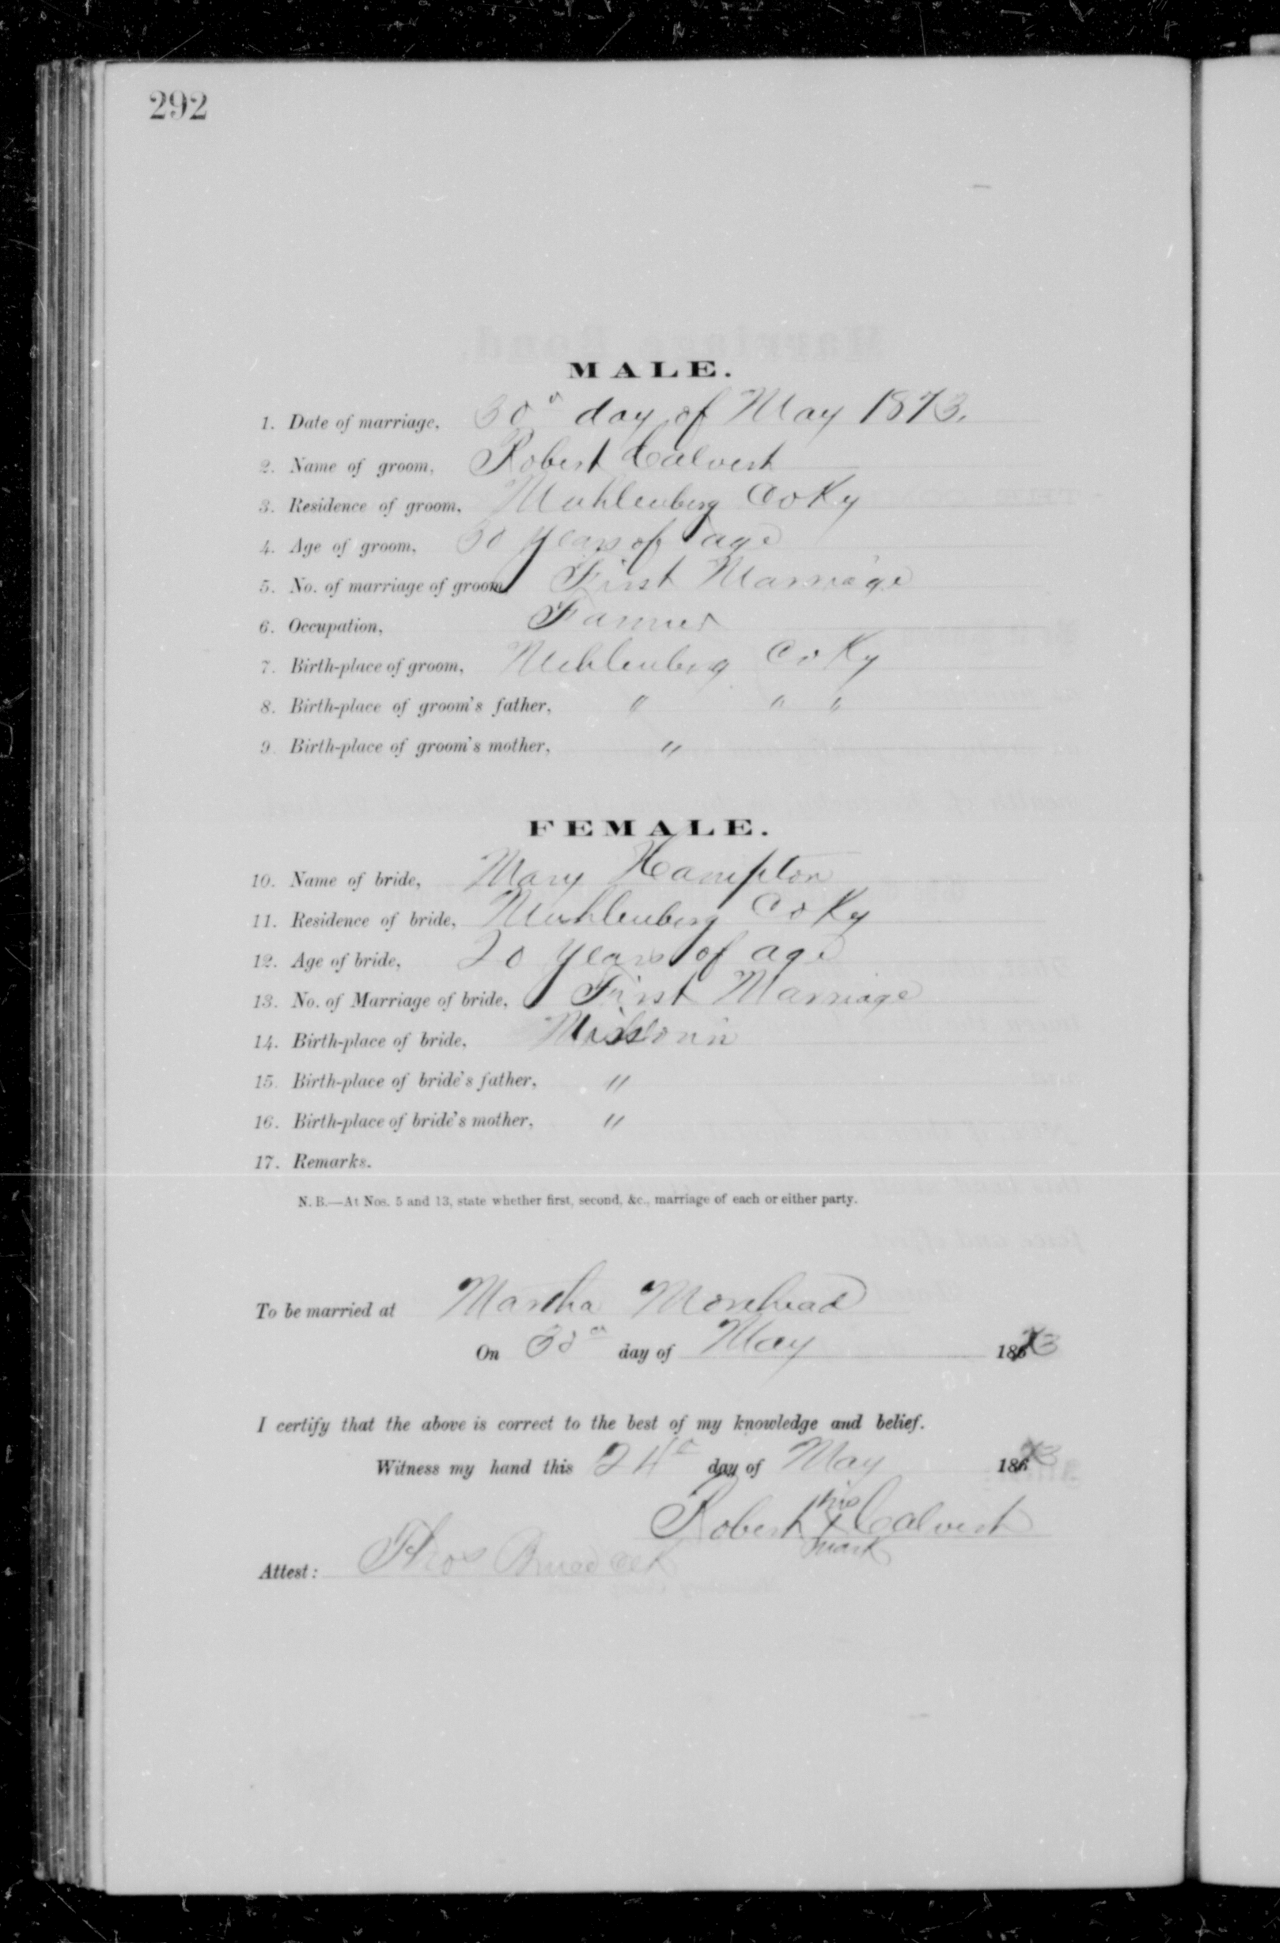 292
MALE.
1. Date of marriage, 30th day of May 1873.
2. Name of groom, Robert Calvert
3. Residence of groom, Muhlenberg Co Ky
4. Age of groom, 30 years of age
5. No. of marriage of groom First Marriage
6. Occupation, Farmer
7. Birth-place of groom, Muhlenberg Co Ky
8. Birth-place of groom's father, " " "
9. Birth-place of groom's mother, "
FEMALE.
10. Name of bride, Mary Hampton
11. Residence of bride, Muhlenberg Co Ky
12. Age of bride, 20 years of age
13. No. of Marriage of bride, First Marriage
14. Birth-place of bride, Missouri
15. Birth-place of bride's father, "
16. Birth-place of bride's mother, "
17. Remarks.
N. B.—At Nos. 5 and 13, state whether first, second, &c., marriage of each or either party.
To be married at Martha Morehead
On 30th day of May 1873
I certify that the above is correct to the best of my knowledge and belief.
Witness my hand this 24th day of May 1873
Robert his X mark Calvert
Attest: Thos